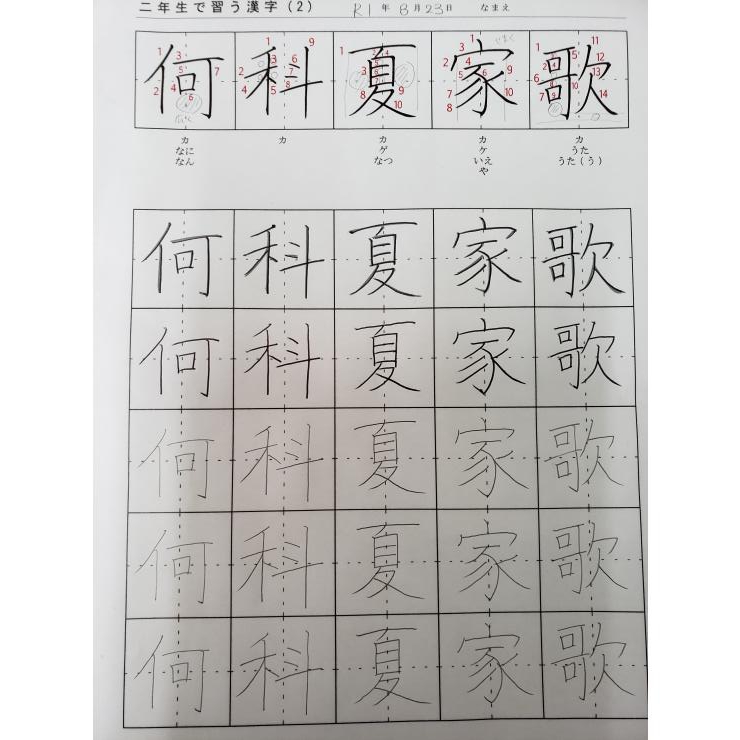 二年生で習う漢字(2) R1年8月23日 なまえ
何 科 夏 家 歌
カ カ カ カ カ
なに ゲ ケ うた
なん なつ いえ うた(う)
や
何 科 夏 家 歌
何 科 夏 家 歌
何 科 夏 家 歌
何 科 夏 家 歌
何 科 夏 家 歌